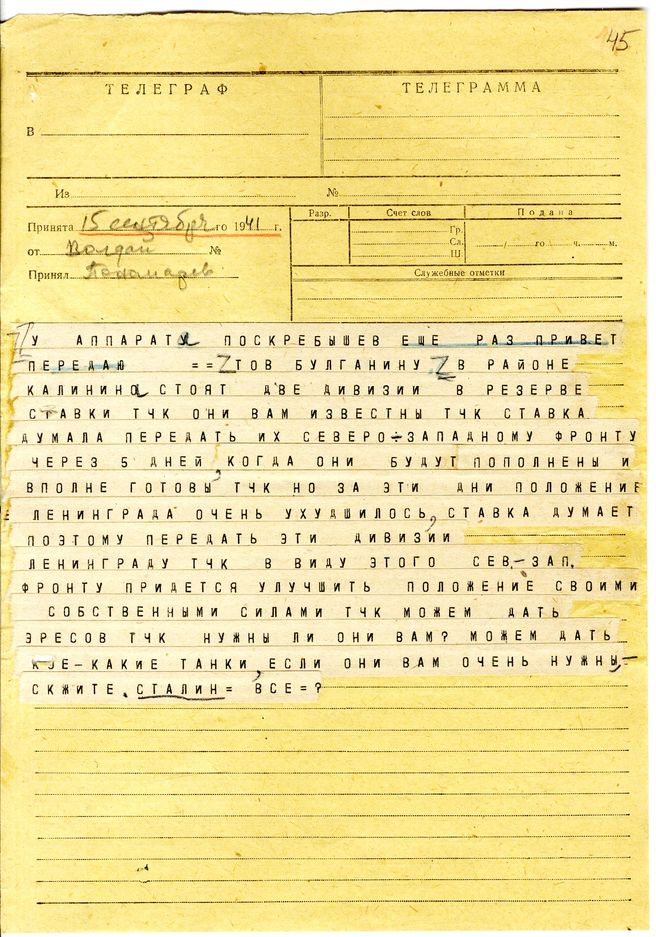 45
ТЕЛЕГРАФ
ТЕЛЕГРАММА
В
Из
№
Принята 15 сентября го 1941 г.
от Валдай №
Принял Пономарев
Разр.
Счет слов
Подана
Гр.
Сл.
Ш.
/ го ч. м.
Служебные отметки
У АППАРАТА ПОСКРЕБЫШЕВ ЕЩЕ РАЗ ПРИВЕТ
ПЕРЕДАЮ == ТОВ БУЛГАНИНУ В РАЙОНЕ
КАЛИНИНА СТОЯТ ДВЕ ДИВИЗИИ В РЕЗЕРВЕ
СТАВКИ ТЧК ОНИ ВАМ ИЗВЕСТНЫ ТЧК СТАВКА
ДУМАЛА ПЕРЕДАТЬ ИХ СЕВЕРО-ЗАПАДНОМУ ФРОНТУ
ЧЕРЕЗ 5 ДНЕЙ, КОГДА ОНИ БУДУТ ПОПОЛНЕНЫ И
ВПОЛНЕ ГОТОВЫ ТЧК НО ЗА ЭТИ ДНИ ПОЛОЖЕНИЕ
ЛЕНИНГРАДА ОЧЕНЬ УХУДШИЛОСЬ, СТАВКА ДУМАЕТ
ПОЭТОМУ ПЕРЕДАТЬ ЭТИ ДИВИЗИИ
ЛЕНИНГРАДУ ТЧК В ВИДУ ЭТОГО СЕВ.-ЗАП.
ФРОНТУ ПРИДЕТСЯ УЛУЧШИТЬ ПОЛОЖЕНИЕ СВОИМИ
СОБСТВЕННЫМИ СИЛАМИ ТЧК МОЖЕМ ДАТЬ
ЭРЕСОВ ТЧК НУЖНЫ ЛИ ОНИ ВАМ? МОЖЕМ ДАТЬ
КОЕ-КАКИЕ ТАНКИ, ЕСЛИ ОНИ ВАМ ОЧЕНЬ НУЖНЫ.-
СКЖИТЕ. СТАЛИН= ВСЕ=?